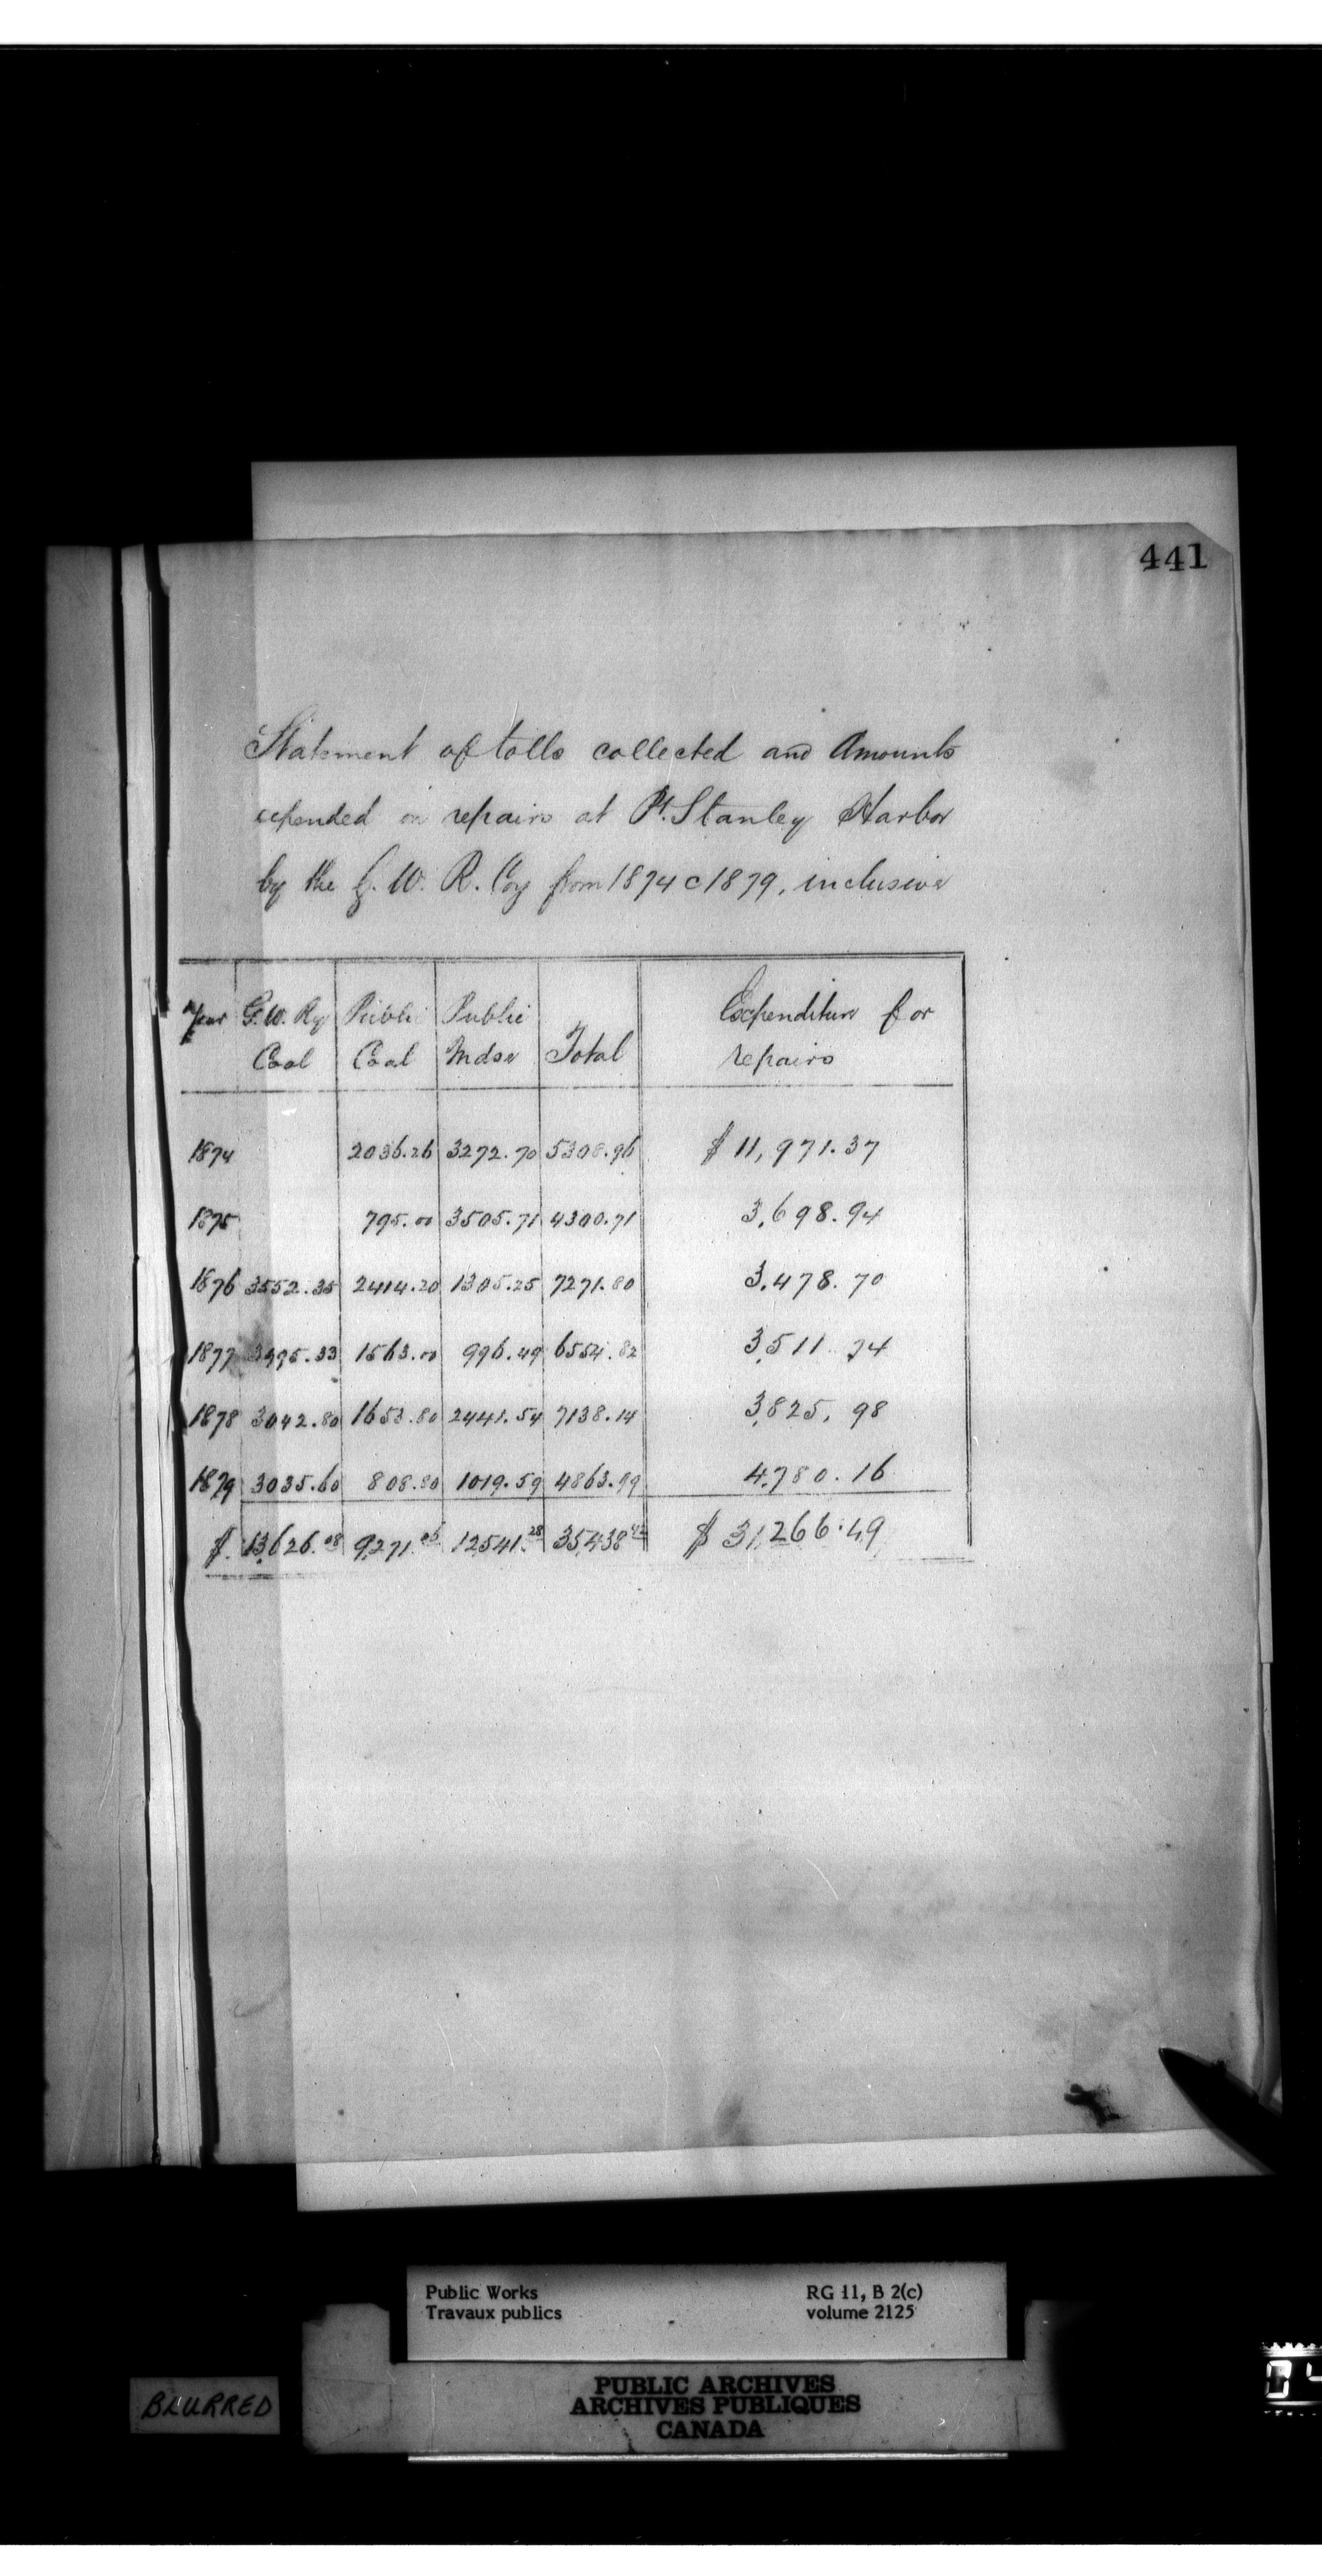 441
Statement of tolls collected and Amounts
expended on repairs at Pt. Stanley Harbor
by the G. W. R. Coy from 1874 @ 1879, inclusive
Year G.W. Ry Coal Public Coal Public Mdse Total Expenditure for repairs
1874 2036.26 3272.70 5308.96 $ 11,971.37
1875 795.00 3505.71 4300.71 3,698.94
1876 3552.35 2414.20 1305.25 7271.80 3,478.70
1877 3995.33 1563.00 996.49 6554.82 3,511.34
1878 3042.80 1653.80 2441.54 7138.14 3,825.98
1879 3035.60 808.80 1019.59 4863.99 4,780.16
$ 13,626.08 9,271.06 12,541.28 35,438.42 $ 31,266.49
Public Works RG 11, B 2(c)
Travaux publics volume 2125
BLURRED
PUBLIC ARCHIVES
ARCHIVES PUBLIQUES
CANADA